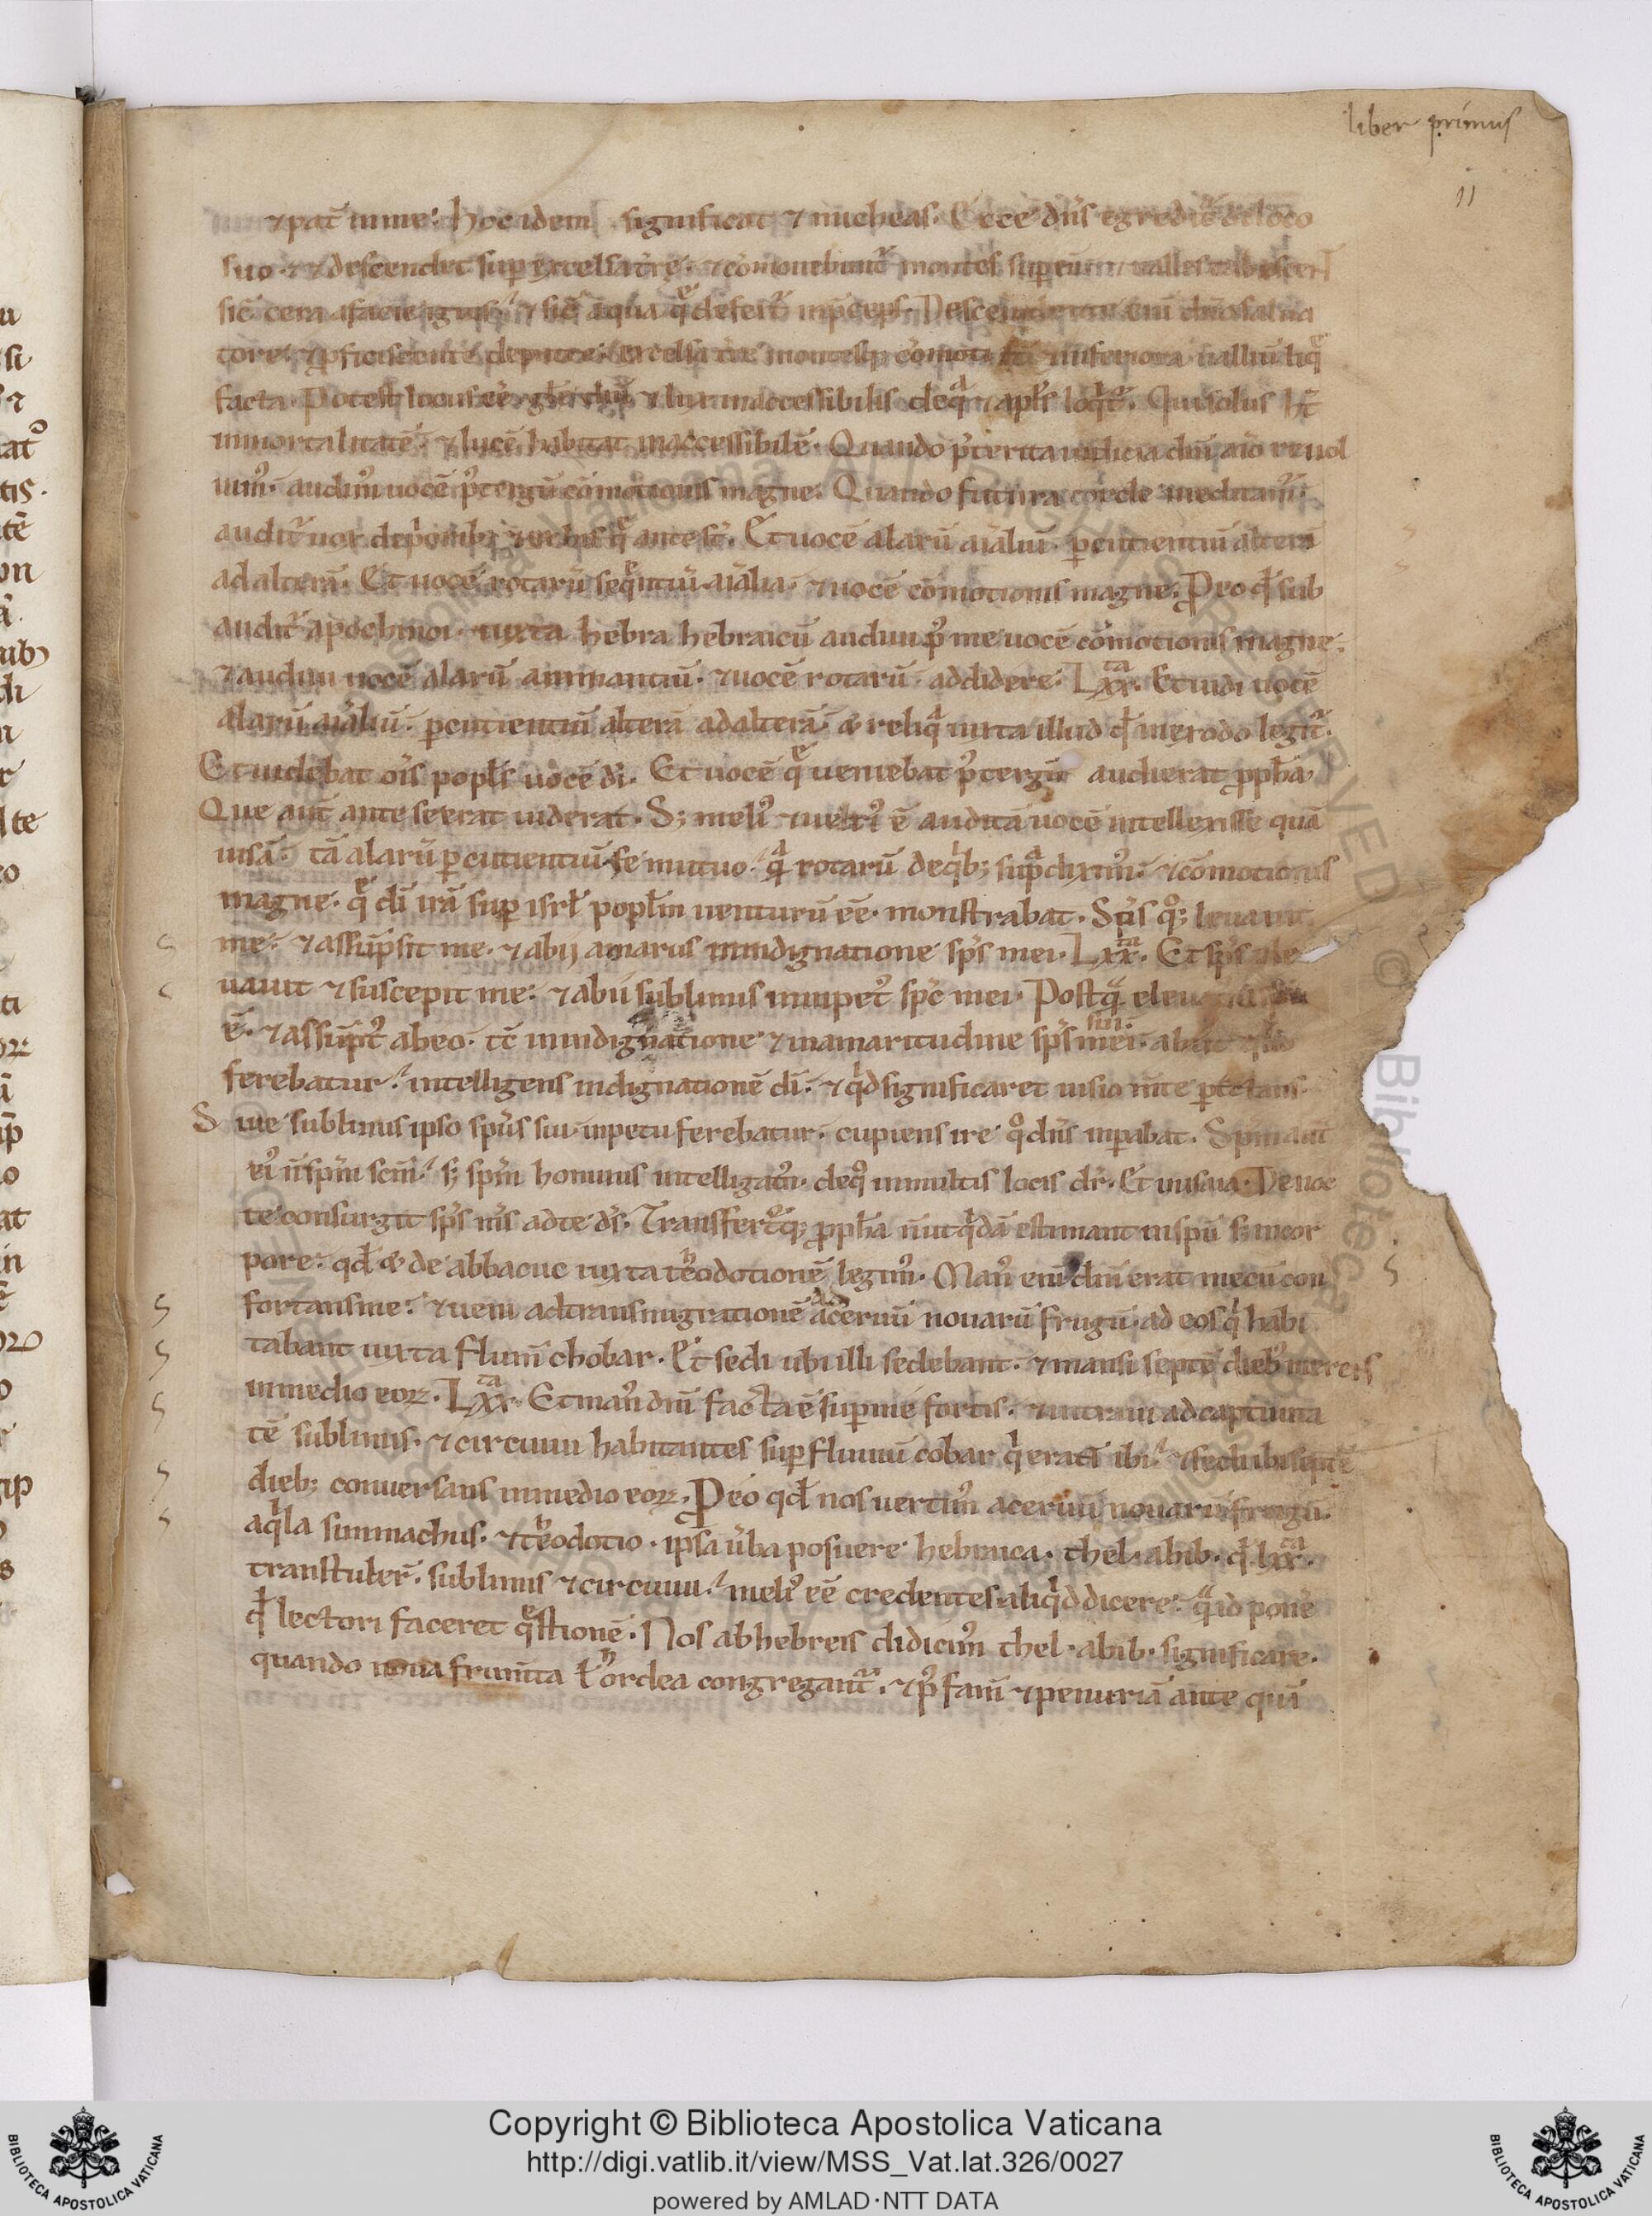 liber primus
11
⁊ pat̄ in me. hoc idem significat ⁊ micheas. Ecce dn̄s egredit̄ de loco
suo ⁊ descendet sup excelsa tr̄e. ⁊ cōmouebunt̄ montes
sic̄ cera a facie ignis. ⁊ sic̄ aqua q̄ defert̄ in p̄ceps. Descendente eni dn̄o salua
tore.
facta. Potest locus et lux inaccessibilis de q̄ ⁊ apl̄s loq̄t̄. Qui solus ht̄
inmortalitatē. ⁊ lucē habitat inaccessibilē. Quando p̄terita iudicia dn̄i aīo reuol
uim̄. audim̄ uocē p̄ tergū cōmotionis magne. Quando futura corde meditam̄.
audit̄ uox de ⁊ q̄ ante st̄. Et uocē alarū aīaliū. pcutientiū alterā
ad alterā. Et uocē rotarū seq̄ntiū aīalia. ⁊ uocē cōmotionis magne. Pro eo qd̄ sub
audit̄ apochinoi. iuxta hebra hebraicū audiui p̄ me uocē cōmotionis magne.
⁊ audiui uocē alarū animantiū. ⁊ uocē rotarū addidere. Lxx.ta Et uidi uocē
alarū aīaliū. pcutientiū alterā ad alterā. & reliq̄ iuxta illud qd̄ in exodo legit̄.
Et uidebat oīs popl̄s uocē dī. Et uocē q̄ ueniebat p̄ tergū audierat ppħa.
Que aut̄ ante se erat uiderat. S; meli᷒ ⁊ ueri᷒ ē auditā uocē intellexisse quā
uisā. tā alarū pcutientiū se mutuo. q̄ rotarū de qib; sup̄ dixim̄. ⁊ cōmotionis
magne. q̄ dī irā sup isrł popl̄m uenturū eē. monstrabat. Sp̄s qo; leuauit
me. ⁊ assūpsit me. ⁊ abij amarus in indignatione sp̄s mei. Lxx.ta Et sp̄s
uauit ⁊ suscepit me. ⁊ abii sublimis in inpet᷒ sp̄c mei. Postq̄
ē. ⁊ assūpt᷒ ab eo. tc̄ in indignatione ⁊ in amaritudine sp̄s sui mei.
ferebatur. intelligens indignationē dī. ⁊ qid significaret uisio mt̄e ptractans.
Siue sublimis ipso sp̄us sui inpetu ferebatur. cupiens ire qo dn̄s inpabat. Sp̄m aut̄
ei᷒ n̄ sp̄m scm̄. s; sp̄m hominis intelligam̄. de qo in multis locis dr̄. Et in isaia. De noc
te consurgit sp̄s m̄s ad te ds̄. Transfert᷒q; ppħa n̄ ut qidā estimant in sp̄u s; in cor
pore. qd̄ & de abbacuc iuxta theodotionē legim̄. Man᷒ eni dn̄i erat mecū con
fortans me. ⁊ ueni ad transmigrationē ad aceruū nouarū frugū. ad eos qi habi
tabant iuxta flum̄ chobar. Et sedi ubi illi sedebant. ⁊ mansi septē dieb᷒ merens
in medio eoꝝ. Lxx.ta Et man᷒ dn̄i facta ē sup me fortis. ⁊ intraui ad captiuita
tē sublimis. ⁊ circuiui habitantes sup fluuiū cobar qi erant ibi. ⁊ sedi ibi septē
dieb; conuersans in medio eoꝝ. Pro eo qd̄ nos uertim̄ aceruū nouarū frugū.
aqila simmachus. ⁊ theodotio. ipsa ūba posuere hebraica. thel. abib. qd̄ lxx.ta
transtuler̄. sublimis ⁊ circuiui. meli᷒ eē credentes aliqid dicere. q̄ id pone
qd̄ lectori faceret q̄stionē. Nos ab hebreis didicim̄ thel. abib. significare.
quando noua frum̄ta ł hordea congregant̄. ⁊ p̄ fam̄ ⁊ penuriā ante quā
Copyright © Biblioteca Apostolica Vaticana
http://digi.vatlib.it/view/MSS_Vat.lat.326/0027
powered by AMLAD·NTT DATA
BIBLIOTECA APOSTOLICA VATICANA
BIBLIOTECA APOSTOLICA VATICANA